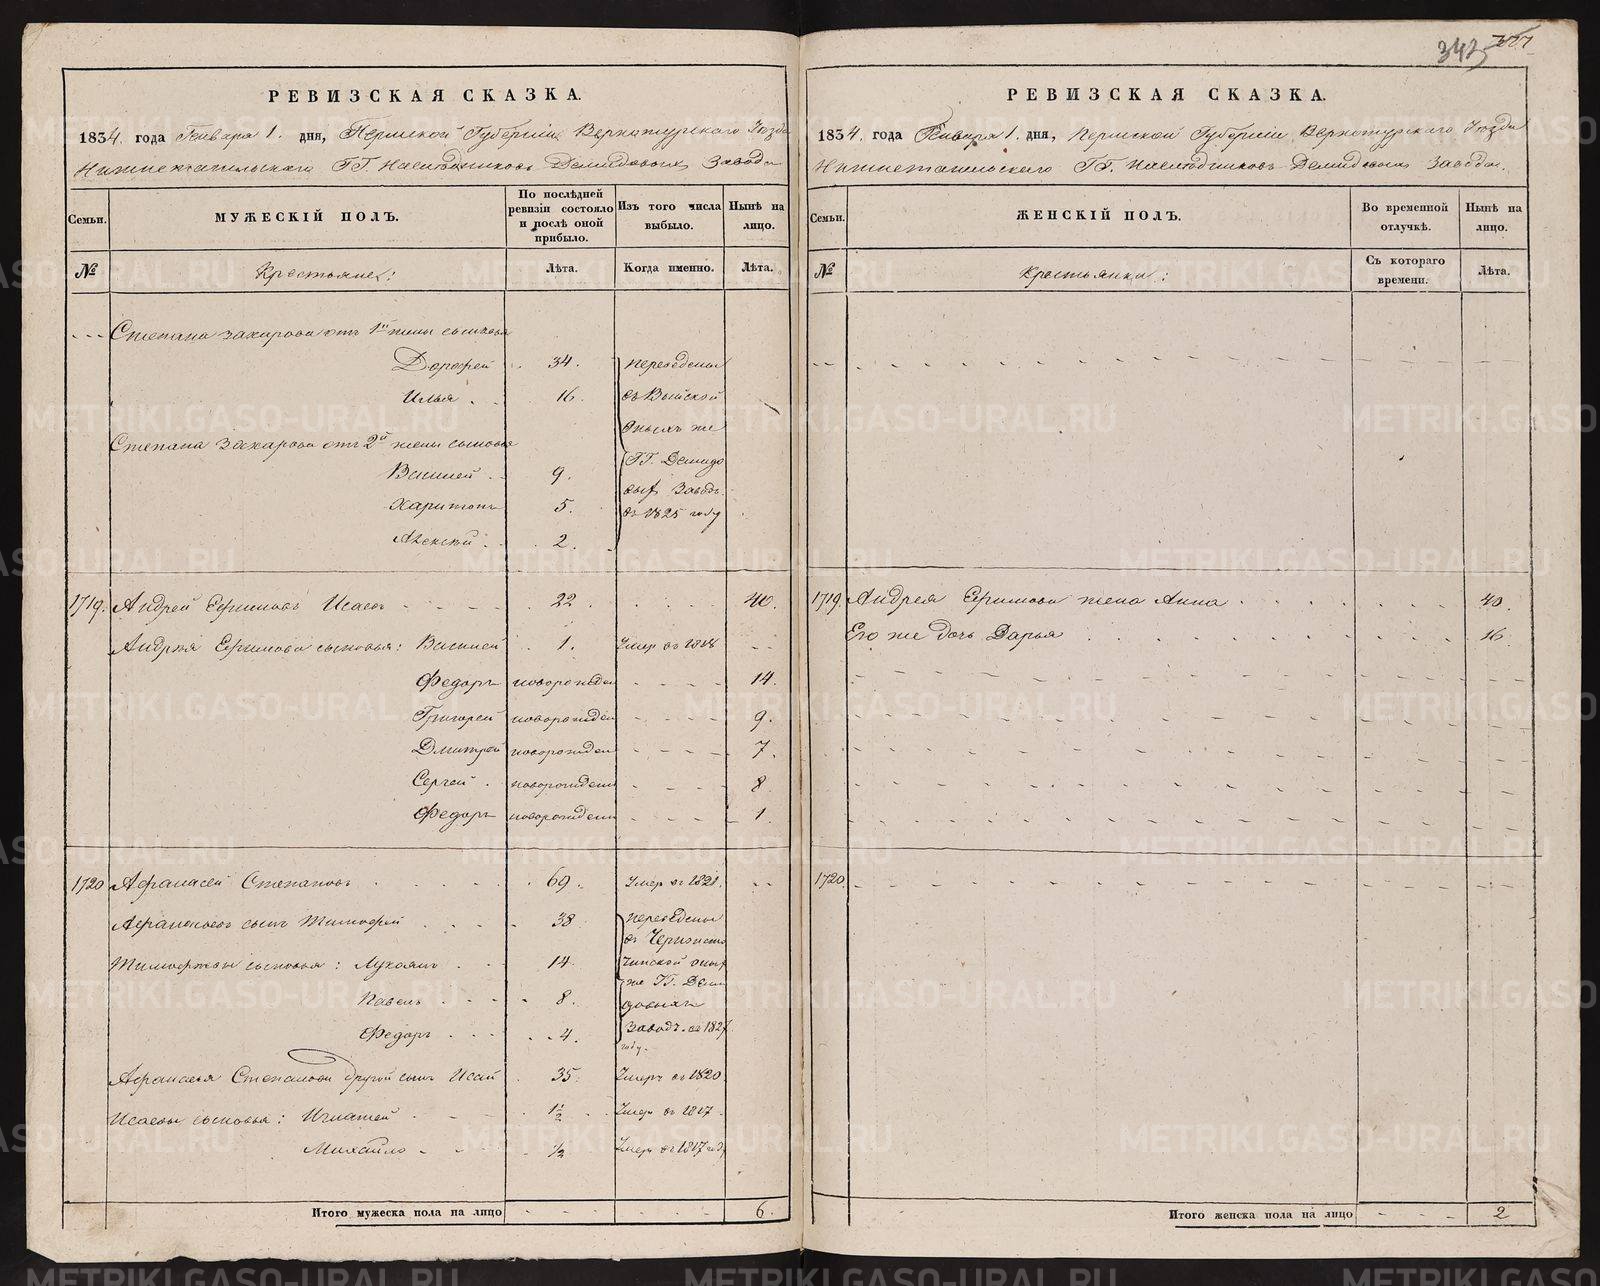 3425
РЕВИЗСКАЯ СКАЗКА.
1834. года Января 1. дня, Пермской Губернии Верхотурскаго Уезда
Нижнетагильскаго ГГ. Наследниковъ Демидовыхъ Завода
Семьи.
МУЖЕСКІЙ ПОЛЪ.
По послѣдней ревизіи состояло и послѣ оной прибыло.
Изъ того числа выбыло.
Нынѣ на лицо.
№
Крестьяне:
Лѣта.
Когда именно.
Лѣта.
Степана Захарова отъ 1й жены сыновья
Дорофей 34. переведены
Илья 16. въ Выйской
оныхъ же
Степана Захарова отъ 2й жены сыновья
ГГ. Демидо
Василей 9. выхъ Заводъ
Харитонъ 5. въ 1825 году
Алексѣй 2.
1719. Андрей Ефимовъ Исаевъ 22. 40.
Андрѣя Ефимова сыновья: Василей 1. Умер въ 1818
Федоръ новорожден 14.
Григорей новорожден 9.
Дмитрей новорожден 7.
Сергей новорожден 8.
Федоръ новорожден 1.
1720 Афанасей Степановъ 69. Умер въ 1821.
Афанасьевъ сынъ Тимофей 38 переведены
въ Черноисто
Тимофѣевы сыновья: Лукоянъ 14. чинской оныхъ
же ГГ. Деми
Павелъ 8. довыхъ
Федоръ 4. Заводъ въ 1827
году.
Афанасья Степанова другой сынъ Исай 35. Умеръ въ 1820
Исаевы сыновья: Игнатей 1 1/2 Умеръ въ 1817.
Михайло 1/2 Умеръ въ 1817 году
Итого мужеска пола на лицо 6.
РЕВИЗСКАЯ СКАЗКА.
1834. года Января 1. дня, Пермской Губернии Верхотурскаго Уезда
Нижнетагильскаго ГГ. Наследниковъ Демидовыхъ Завода.
Семьи.
ЖЕНСКІЙ ПОЛЪ.
Во временной отлучкѣ.
Нынѣ на лицо.
№
Крестьянки:
Съ котораго времени.
Лѣта.
1719. Андрея Ефимова жена Анна 40.
Его же дочь Дарья 16.
1720.
Итого женска пола на лицо 2
METRIKI.GASO-URAL.RU